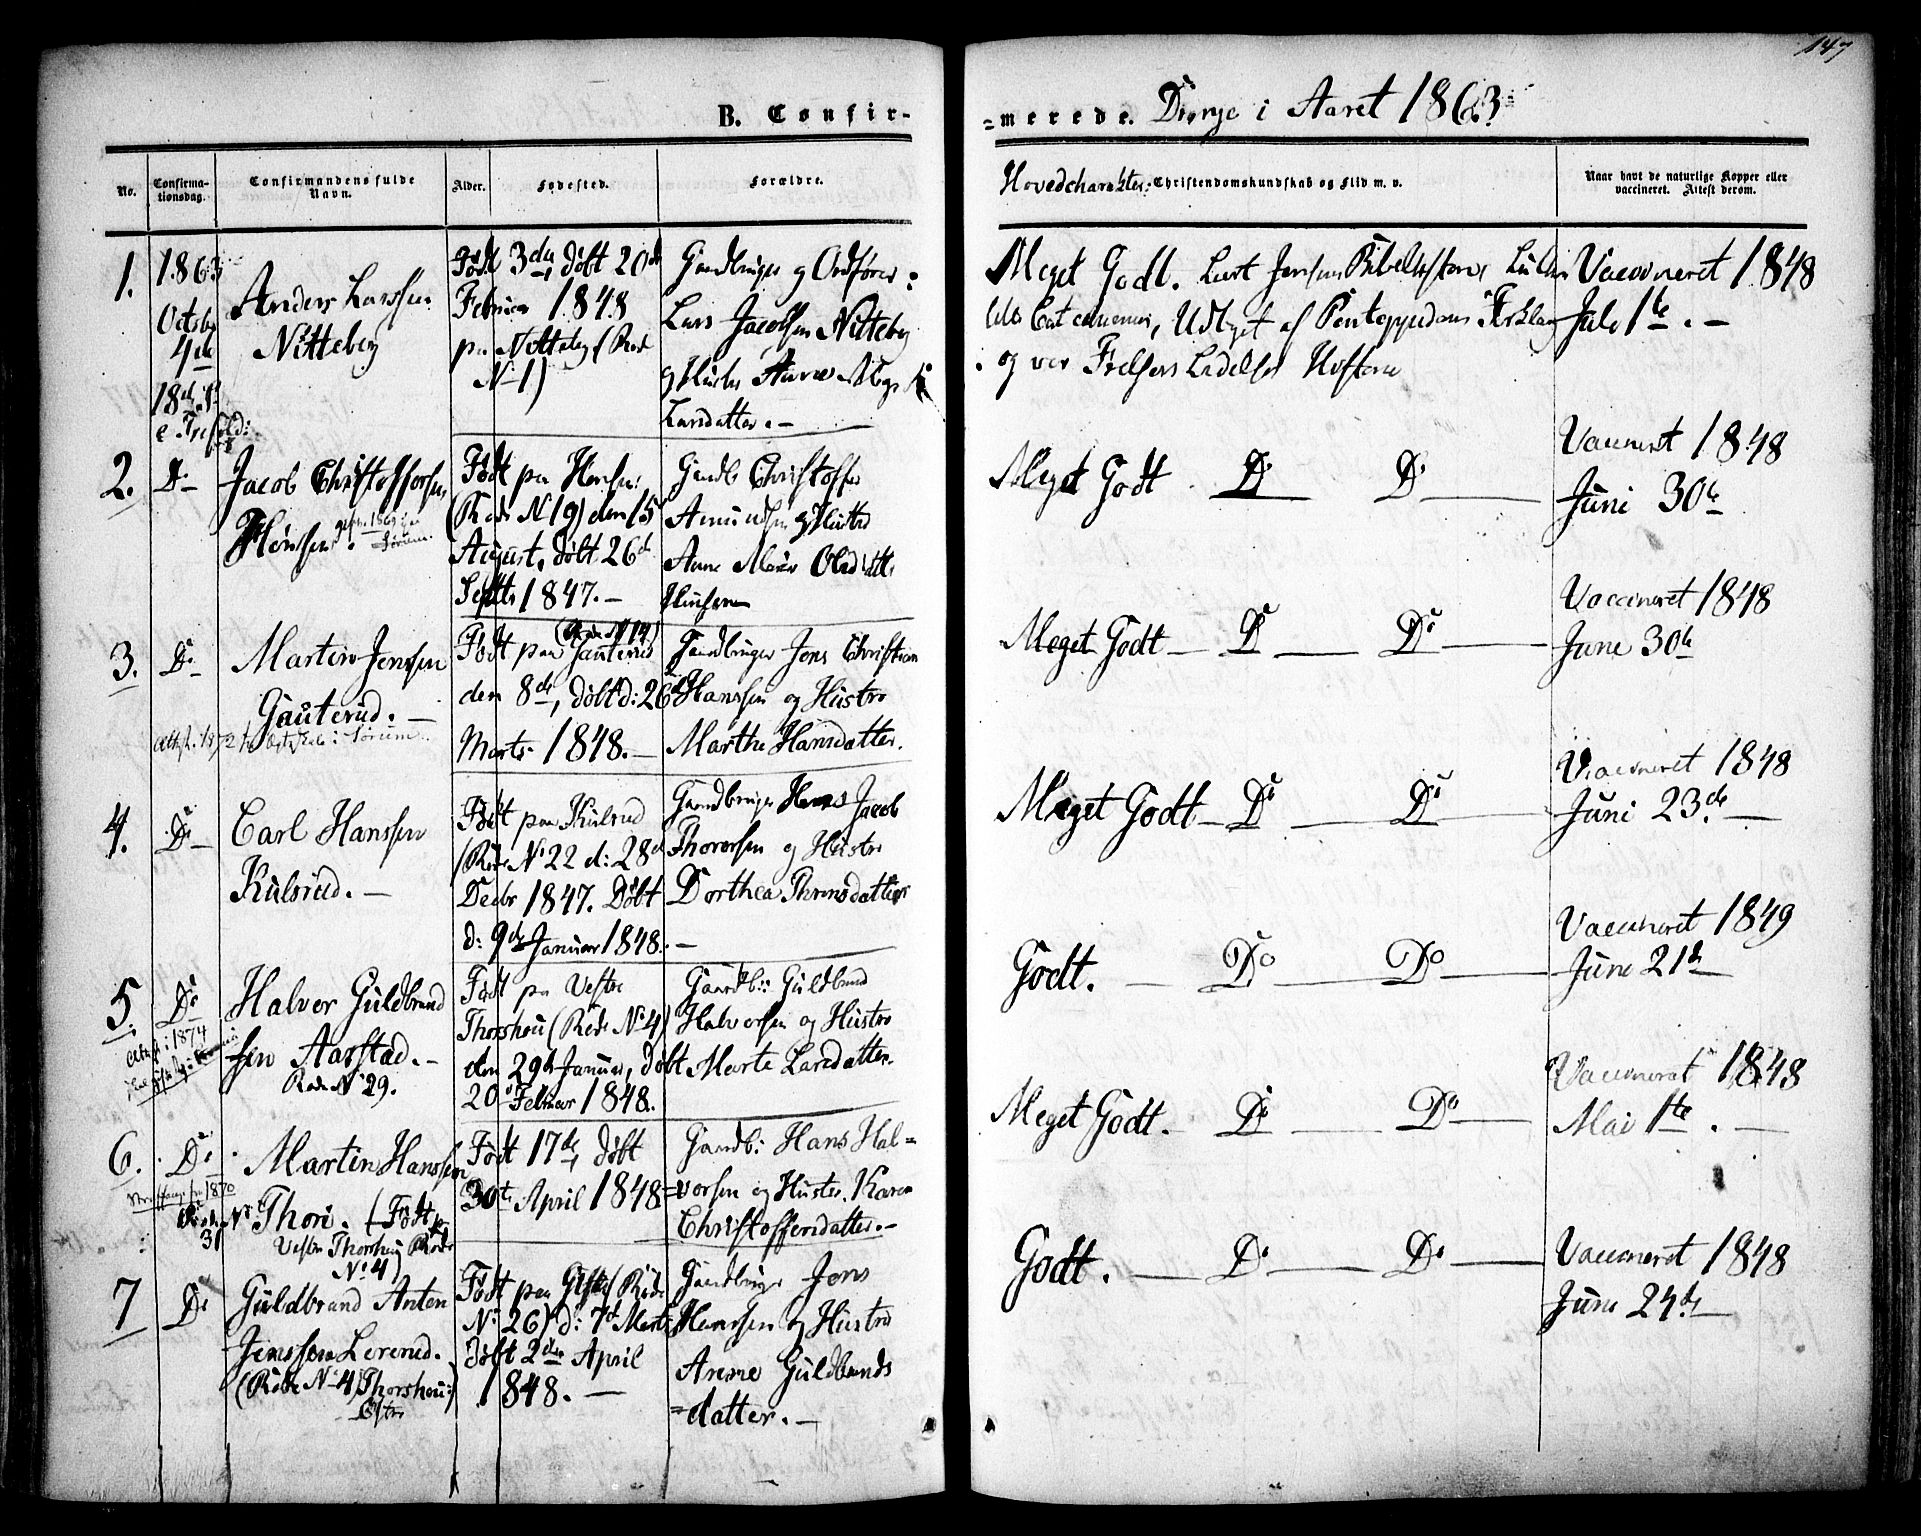 147
B. Confir-
=merede. Drenge i Aaret 1863
No.
Confirma-
tionsdag.
Confirmandens fulde
Navn.
Alder.
Fødested.
Forældre.
Hovedcharakter: Christendomskundskab og Flid m. v.
Naar havt de naturlige Kopper eller
vaccineret. Attest derom.
1.
1863
Octobr
4de
18de S.
e. Trefold:
Anders Larssen
Nitteberg
Født 3die, døbt 20de
Februar 1848
paa Nitteberg (Rode
No 1)
Gaardbruger og Ordfører:
Lars Jacobsen Nitteberg
og Hustro Anne
Larsdatter. —
Meget Godt. Læst Jensens Bibelhistorie, Luthers
lille Catechismus, Udtoget af Pontoppidans Forklaring
og vor Frelsers Historie
Vaccineret 1848
Juli 1te. —
2.
Do
Jacob Christoffersen
Hønsen.
Sørum.
Født paa Hønsen
(Rode No 19) den 15
August, døbt 26de
Septbr 1847. —
Gaardb. Christoffer
Amundsen og Hustro
Anne Marie Olsdatter
Hønsen
Meget Godt Do Do
Vaccineret 1848
Juni 30te
3.
Do
Martin Jenssen
Gauterud. —
Sørum.
(Rode No 14)
Født paa Gauterud
den 8de, døbt d: 26de
Marts 1848. —
Gaardbruger Jens Christian
Hanssen og Hustro
Marthe Hansdatter.
Meget Godt Do Do
Vaccineret 1848
Juni 30te
4.
Do
Carl Hanssen
Kulsrud. —
Født paa Kulsrud
(Rode No 22 d: 28de
Decbr 1847. Døbt
d: 9de Januar 1848. —
Gaardbruger Hans Jacob
Thoresen og Hustro
Dorthea
Meget Godt Do Do
Vaccineret 1848
Juni 23de. —
5.
Do
Halvor Guldbrand
sen Aarstad. —
Rode No 29.
Født paa Vestre
Thorshou (Rode No 4)
den 29de Januar, døbt
20de Februar 1848.
Gaardb: Guldbrand
Halvorsen og Hustro
Marte Larsdatter.
Godt. Do Do
Vaccineret 1849
Juni 21de
6.
Do
Martin Hanssen
Thori. (Født paa
Vestre Thorshoug Rode
No 4)
Rode No
31
Født 17de, døbt
30te April 1848
Gaardb: Hans Hal=
=vorsen og Hustro Karen
Christoffersdatter. —
Meget Godt. Do Do
Vaccineret 1848
Mai 1te. —
7
Do
Guldbrand Anton
Jenssen Lererud.
(Rode No 4 Thorshou:
Østre
Født paa (Rode
No 26) d: 7de Marts
døbt 2den April
1848. —
Gaardbruger Jens
Hanssen og Hustro
Anne Guldbrands
=datter. —
Godt. Do Do
Vaccineret 1848
Juni 24de